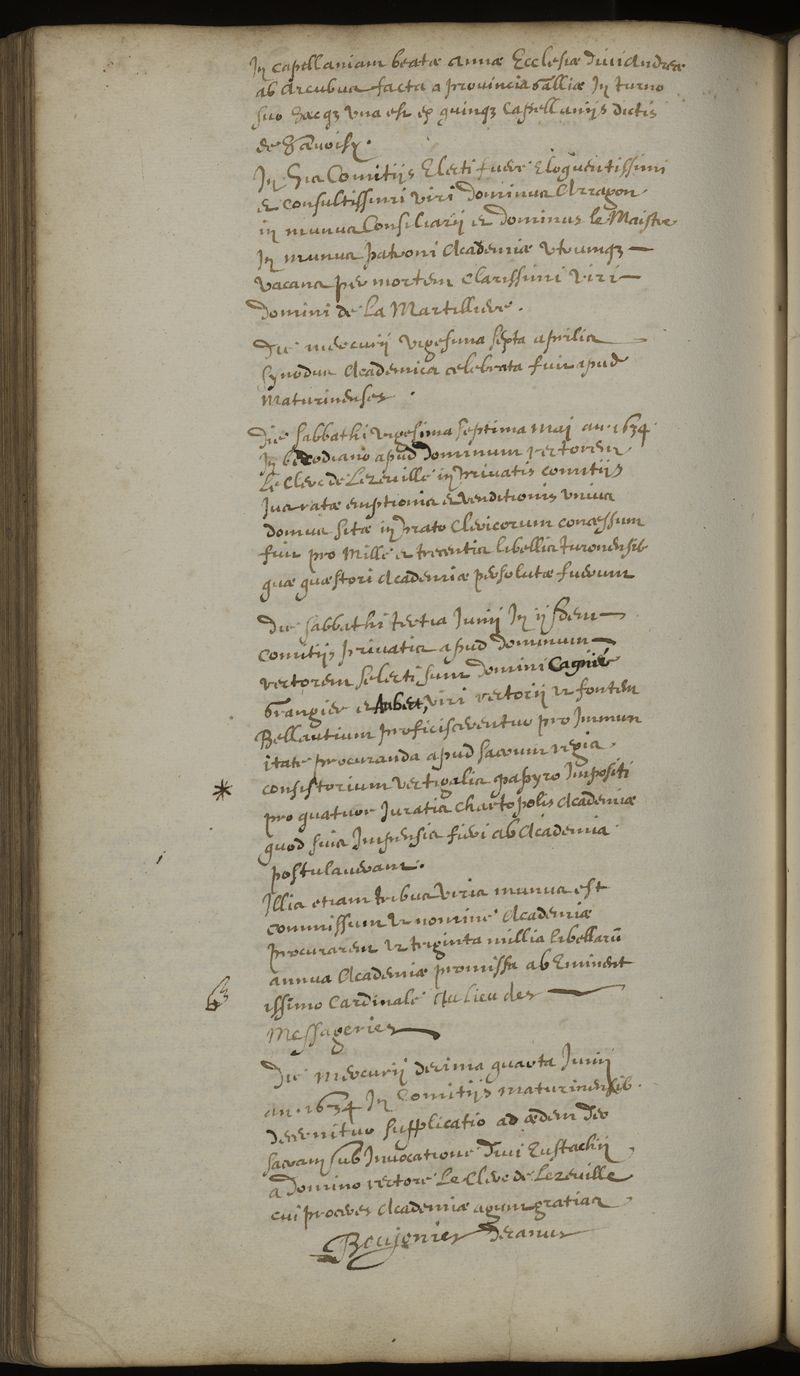 In capellaniam beatæ annæ Ecclesiæ divi Andreæ
ab Arcubus facta a provincia Galliæ In turno
suo hæcq; una est ex quinq; Capellaniis dictis
de
In his Comitiis Electi fuere Eloquentissimi
et consultissimi viri Dominus Arragon
in munus Consiliarii et dominus le Maistre
In munus patroni Academiæ utrumq;
vacans per mortem clarissimi viri
Domini de La Martilliere.
Die mercurii vigesima septa aprilis
synodus Academica celebrata fuit apud
Maturinenses.
Die sabbathi vigesima septima Maij an. 1634
In apud Dominum rectorem
Le Clerc de Lezeville in privatis comitiis
Jus ratæ emptionis et venditionis unius
domus sitæ in prato Clericorum concessum
fuit pro Mille et trecentis libellis turonensib
quæ quæstori Academiæ persolutæ fuerunt
Die sabbathi tertia Junij In ijsdem
comitijs privatis apud dominum
rectorem selecti sunt Domini Cagnié
Grangier et Aubert, viri rectorii ut fontem
Bellaitium proficiscerentur pro Immun
itate procuranda apud sacrum regis
consistorium vectigalis papyro Impositi
* pro quatuor Juratis Chartopolis Academiæ
quod suis Impensis fieri ab Academia
postulaverant.
Illis etiam tribus viris munus est
commissum ut nomine Academiæ
procurarent ut triginta millia libellarū
annua Academiæ promissa ab Eminent
issimo Cardinale Au lieu des
Messageries
Die Mercurij decima quarta Junij
an. 1634 In Comitijs maturinensib.
decernitur supplicatio ad ædem deo
sacram sub Invocatione Divi Eustachij
a Domino rectore Le Clerc de Lezeville
cui proceres Academiæ agunt gratias
Boujonier Decanus